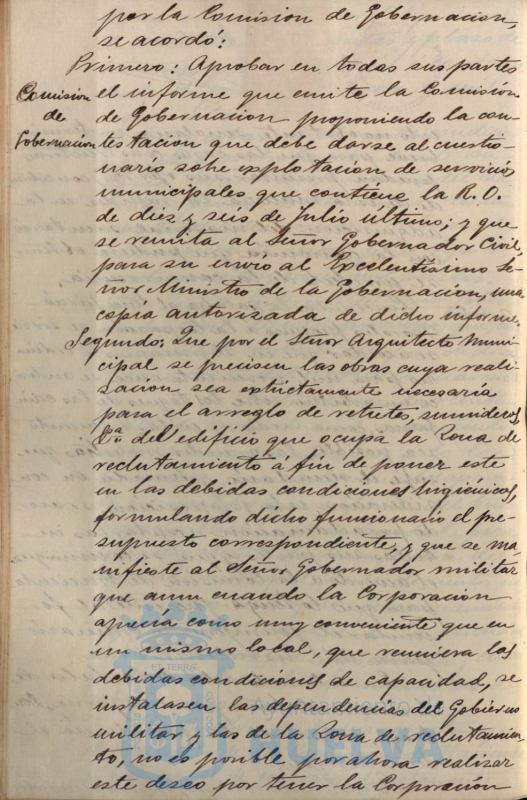 por la Comision de Gobernacion,
se acordó:
Primero: Aprobar en todas sus partes
Comision
de
Gobernacion
el informe que emite la Comision
de Gobernacion proponiendo la con-
testacion que debe darse al cuestio-
nario sobre esplotacion de servicios
municipales que contiene la R. O.
de diez y seis de Julio último; y que
se remita al Señor Gobernador Civil,
para su envio al Excelentísimo Se-
ñor Ministro de la Gobernacion, una
copia autorizada de dicho informe.
Segundo: Que por el Señor Arquitecto Muni-
cipal se precisen las obras cuya reali-
zacion sea extrictamente necesaria
para el arreglo de retretes, sumideros,
&a del edificio que ocupa la Zona de
reclutamiento á fin de poner este
en las debidas condiciones higiénicas,
formulando dicho funcionario el pre-
supuesto correspondiente, y que se ma
nifieste al Señor Gobernador militar
que aun cuando la Corporacion
aprecia como muy conveniente que en
un mismo local, que reuniera las
debidas condiciones de capacidad, se
instalasen las dependencias del Gobierno
militar y las de la Zona de reclutamien-
to, no es posible por ahora realizar
este deseo por tener la Corporacion
HUELVA